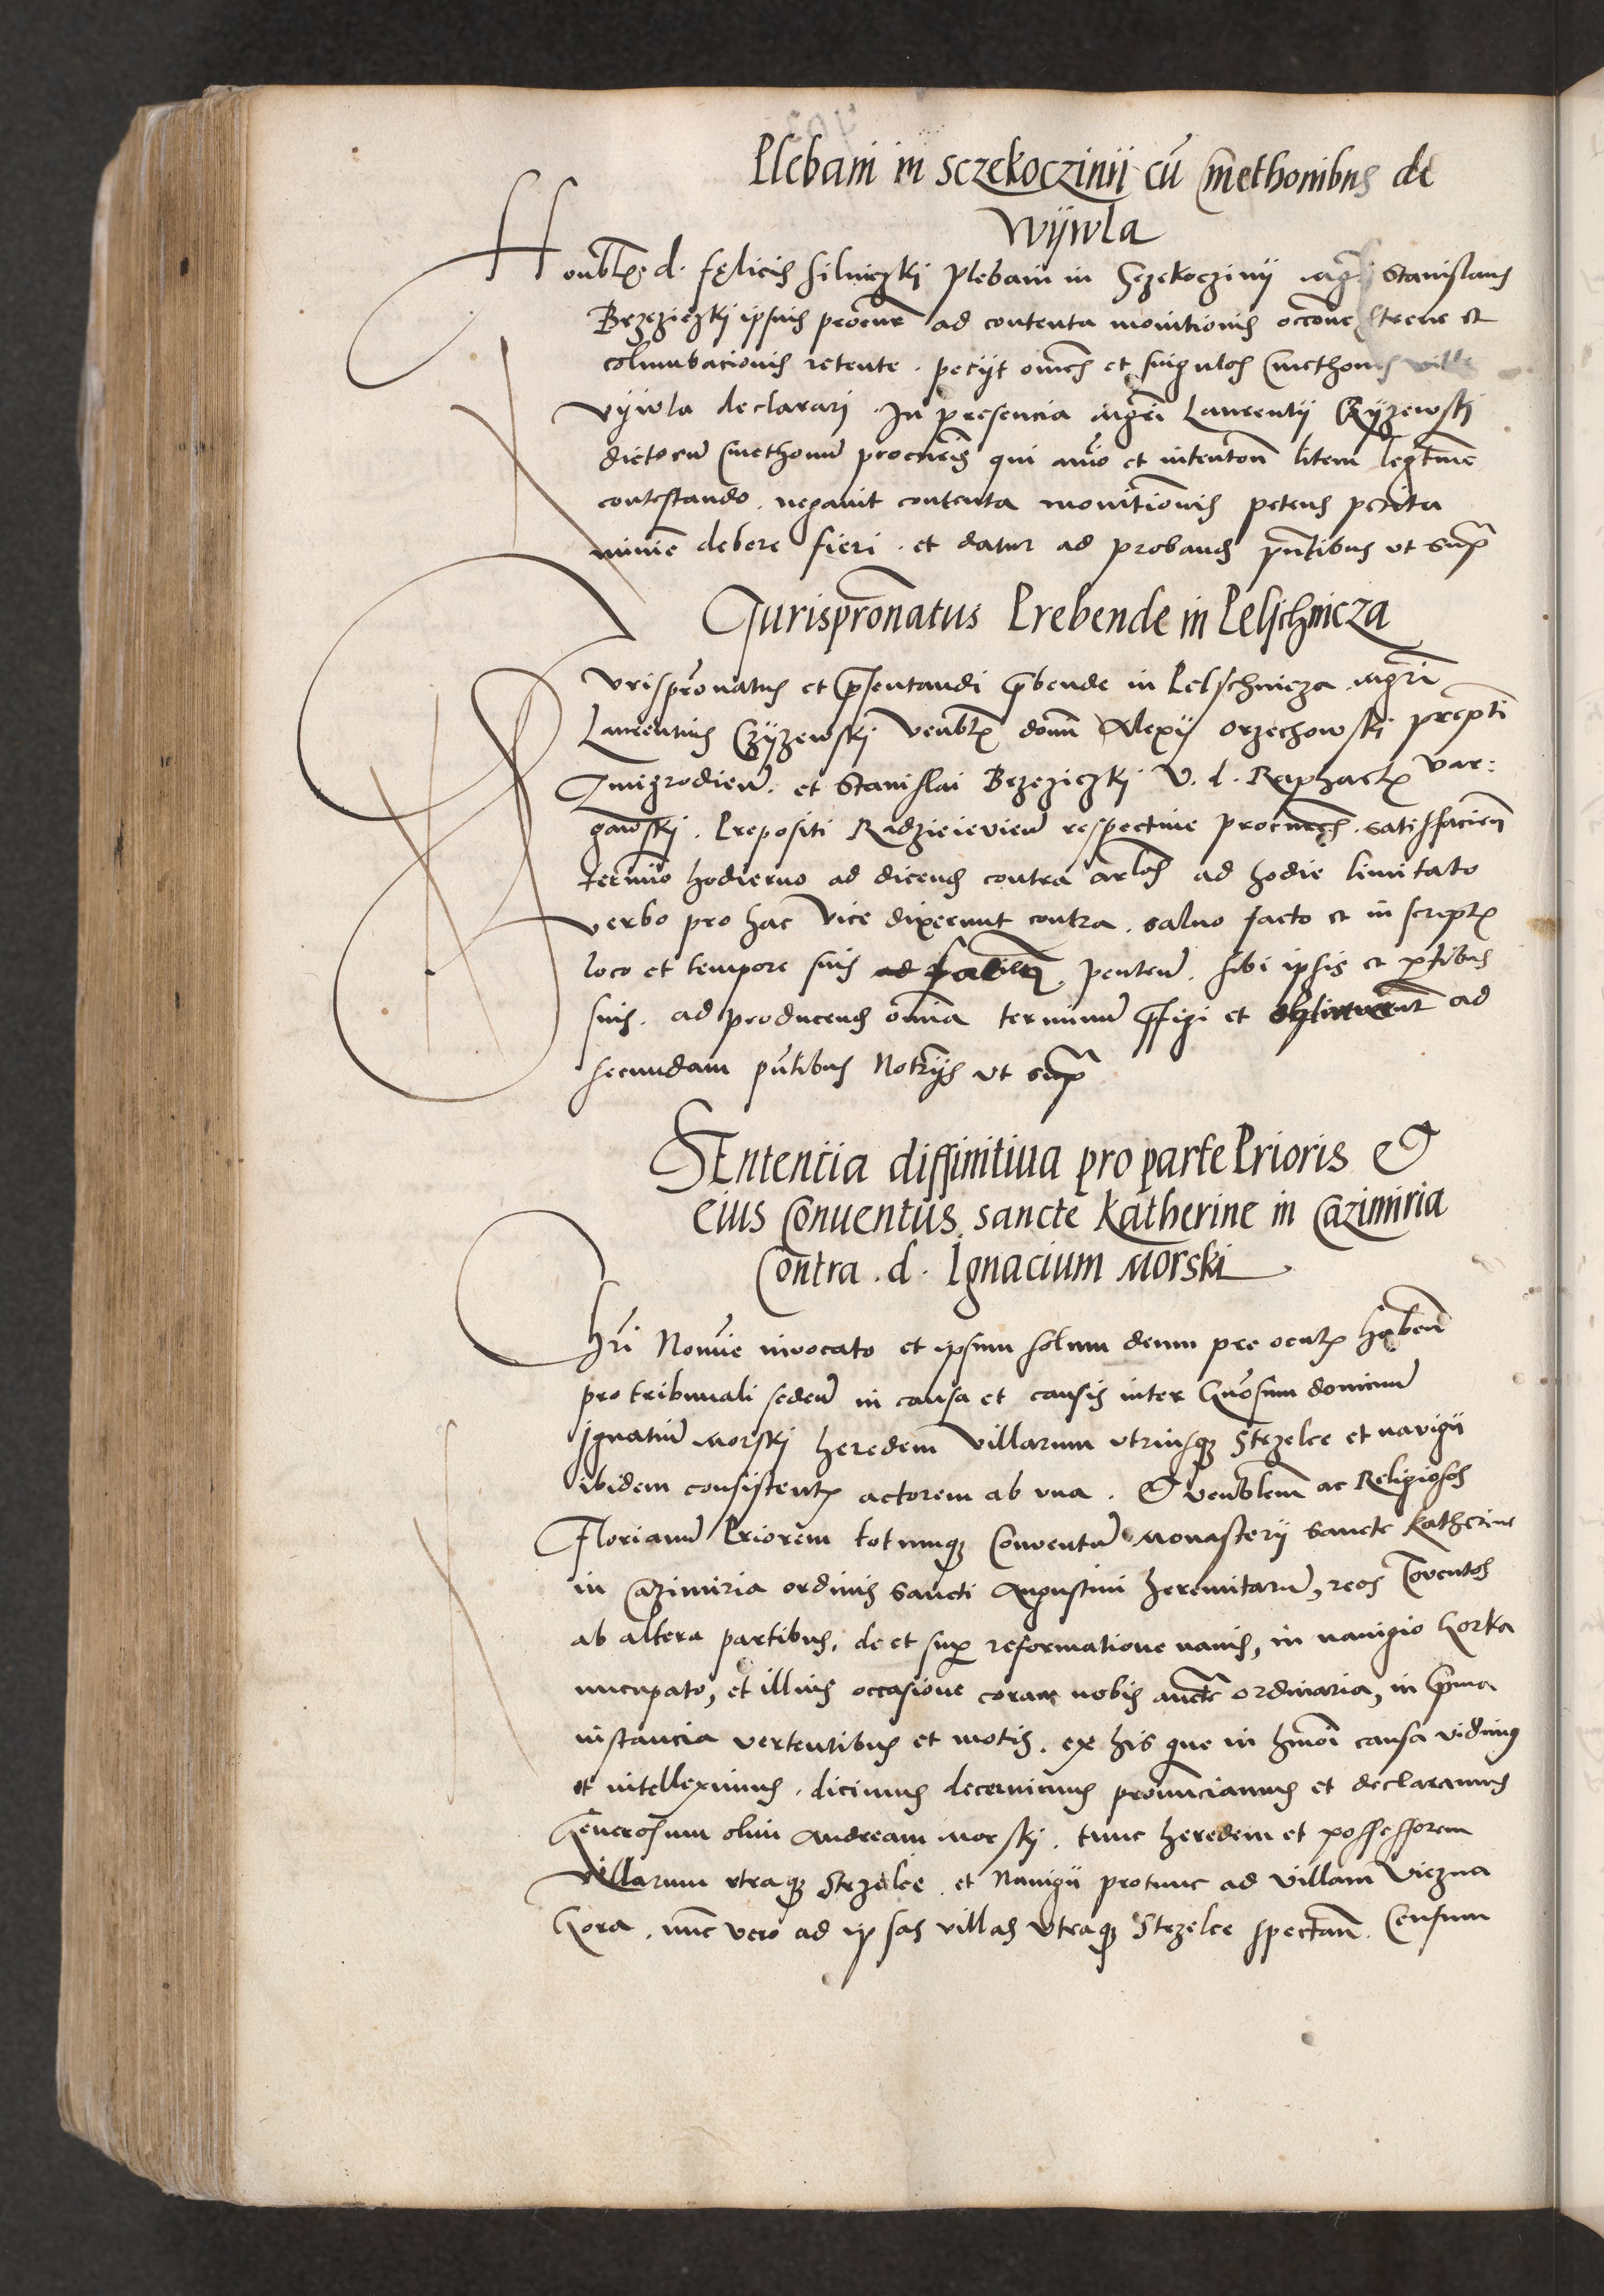 Plebani in Sczekoczinii cū Cmethonibus de
Wijwla
Honblis d. felicis Silniczkj Plebani in Sczekoczinij Stanislaus
Brzeziczkj ipsius procur ad contenta monitionis occoone et
columbacionis retente . petijt omēs et singulos Cmethones ville
Vijwla declararj . In presencia mgri Laurentij Czijzewskj
dictorū Cmethonū procuris qui aūo et intentoni litem legitme
contestando . negauit contenta monitionis petens petita
minīe debere fieri . et datur ad proband pntibus ut supra
Jurispronatus Prebende in Pelschnicza
Jurisprōnatus et psentandi pbende in Pelschnicza . mgri
Laurentius Czijzewskj Venblis domī Alexij Orzechowskj preptī
Zmigrodieñ. et Stanislai Brzeziczkj V. d. Raphaelis Var:
gawskj . Prepositi Radzieievieñ respectiue procures . satisfacieñ
termīo hodierno ad dicend contra arlos ad hodie limitato
verbo pro hac vice dixerunt contra . saluo facto et in scriptis
loco et tempore suis petenteñ . sibi ipsis et ptibus
suis . ad producend omīa terminū pfigi et obtinuerūt ad
secundam pñtibus Notrijs ut supra
SEntencia diffinitiua pro parte Prioris Et
eius Conuentus sancte Katherine in Cazimiria
Contra . d . Ignacium Morski
Chri Nomīe inuocato et ipsum solum deum pre oculis habeñ
pro tribunali sedeñ in causa et causis inter Gñosum dominū
Ignatiū Morskj heredem villarum utriusq Strzelce et nauigii
ibidem consistentis actorem ab una . Et venblem ac Religiosos
Florianū Priorem totumq Conuentū Monasterij sancte Katherine
in Cazimiria ordinis sancti Augustini heremitarū, reos Conuentos
ab altera partibus, de et sup reformatione nauis, in nauigio Gorka
nucupato, et illius occasione coram nobis aucte ordinaria, in prima
instancia vertentibus et motis . ex his que in hmoi causa vidimus
et intelleximus . dicimus decernimus pronunciamus et declaramus
Generosum olim Andream Morskj . tunc heredem et possessorem
Villarum utraq Strzelce . et Nauigii protunc ad villam Viczna
Gora . nunc vero ad ipsas villas utraq Strzelce spectañ . Censum